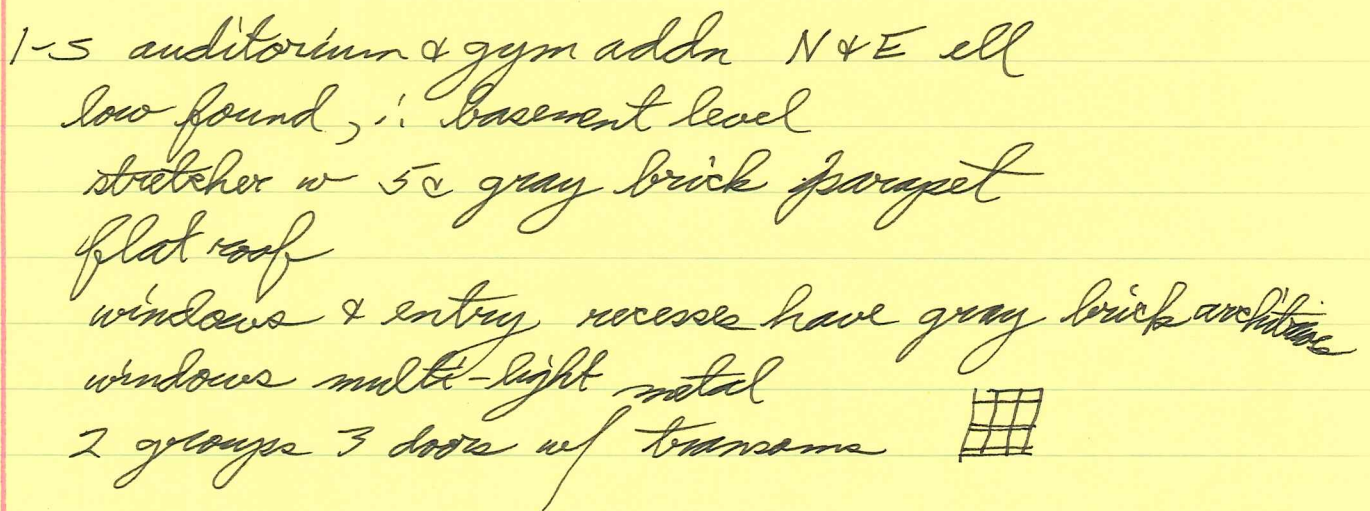 1-S auditorium & gym addn N & E ell
low found, ∴ basement level
stretcher w 5c gray brick parapet
flat roof
windows & entry recesses have gray brick architraves
windows multi-light metal
2 groups 3 doors w/ transoms